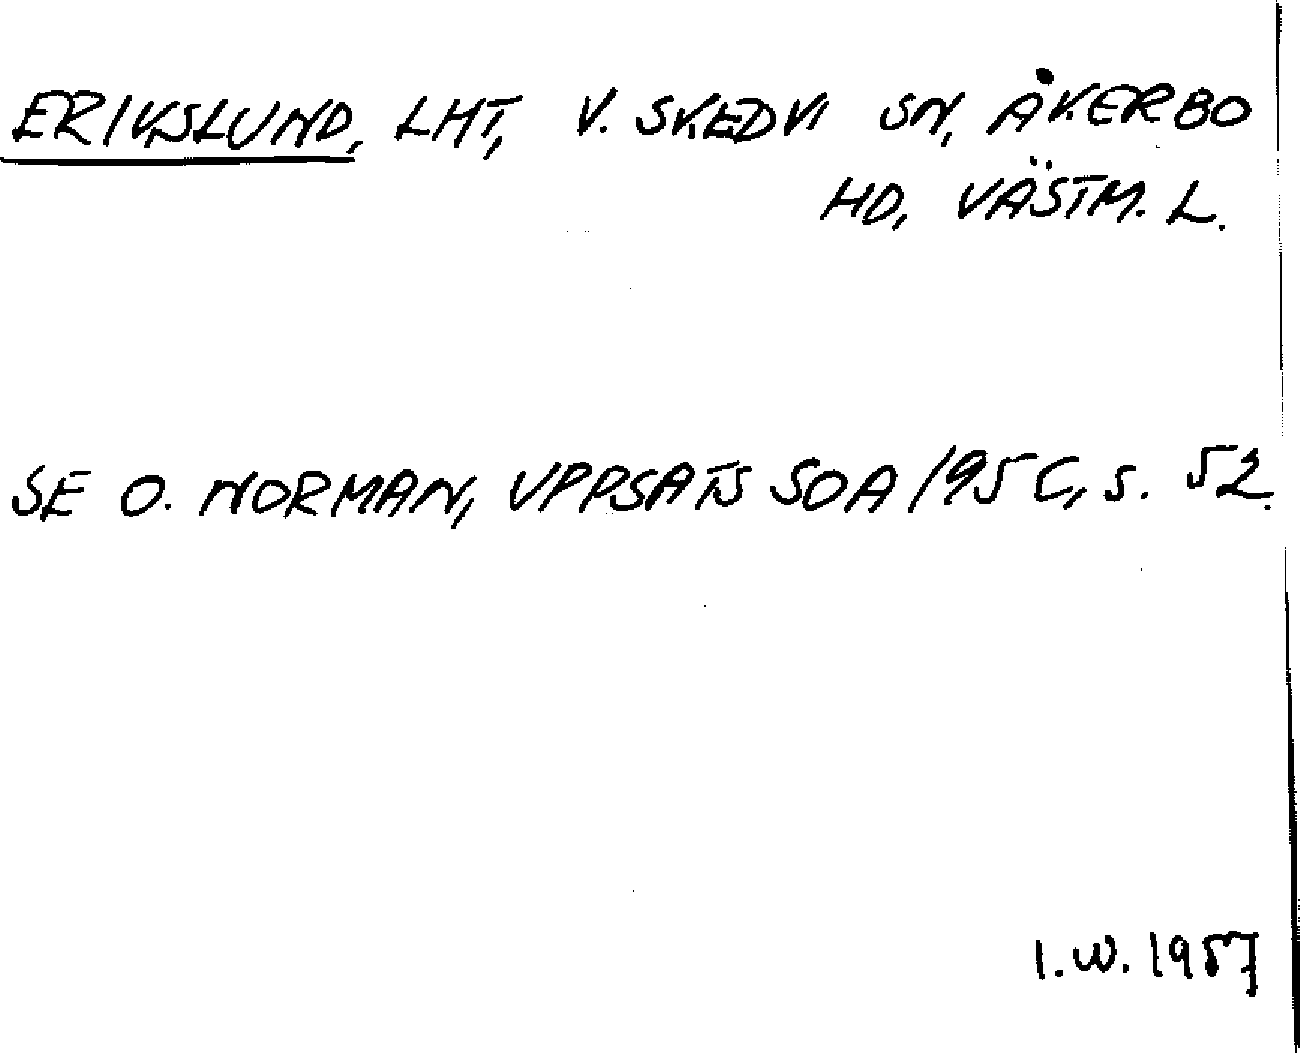 ERIKSLUND, LHT, V. SKEDVI SN, ÅKERBO
HD, VÄSTM. L.
SE O. NORMAN, UPPSATS SOA 195C, S. 52.
I.W. 1957